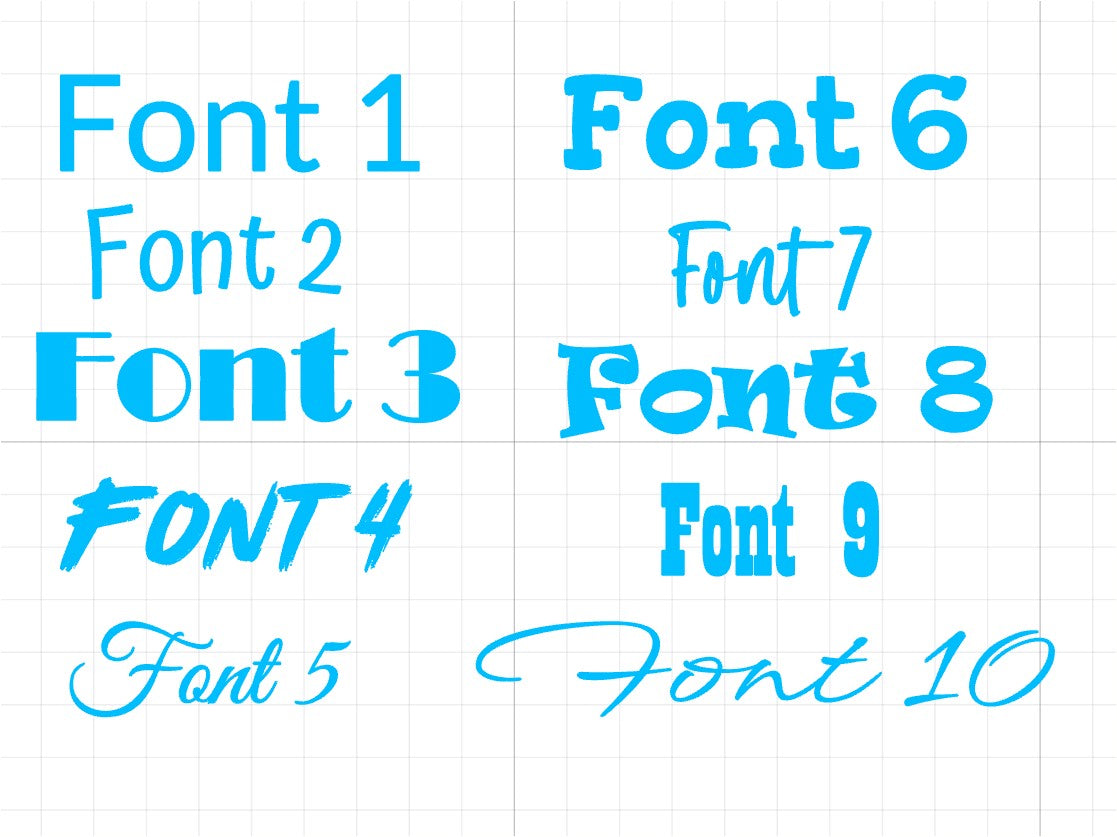 Font 1
Font 2
Font 3
FONT 4
Font 5
Font 6
Font 7
Font 8
Font 9
Font 10